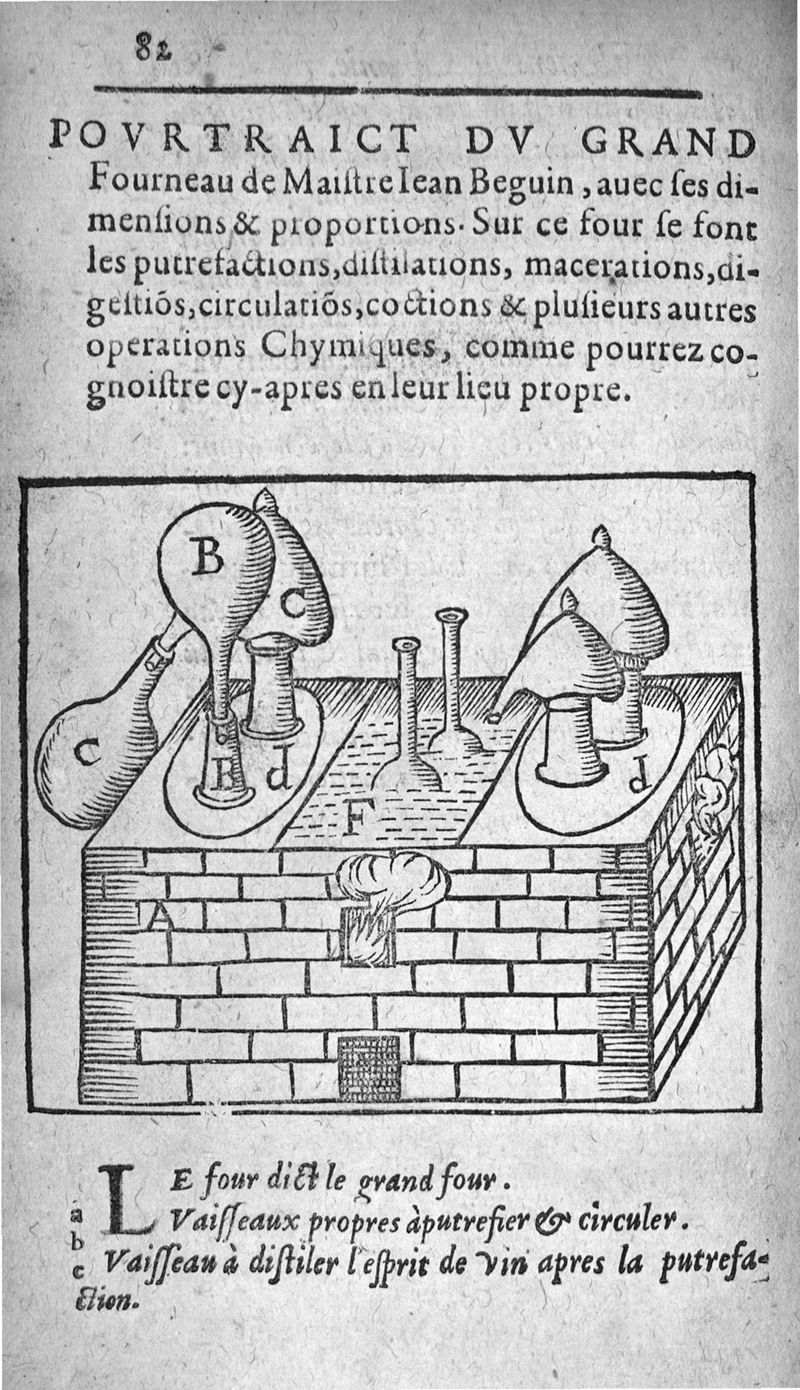 82
POVRTRAICT DV GRAND
Fourneau de Maiſtre Iean Beguin, auec ſes di-
menſions & proportions. Sur ce four ſe font
les putrefactions, diſtilations, macerations, di-
geſtiõs, circulatiõs, coctions & pluſieurs autres
operations Chymiques, comme pourrez co-
gnoiſtre cy-apres en leur lieu propre.
B
C
C
B
d
F
d
A
LE four dict le grand four.
a Vaiſſeaux propres à putrefier & circuler.
b
c Vaiſſeau à diſtiler l'eſprit de vin apres la putrefa-
ction.